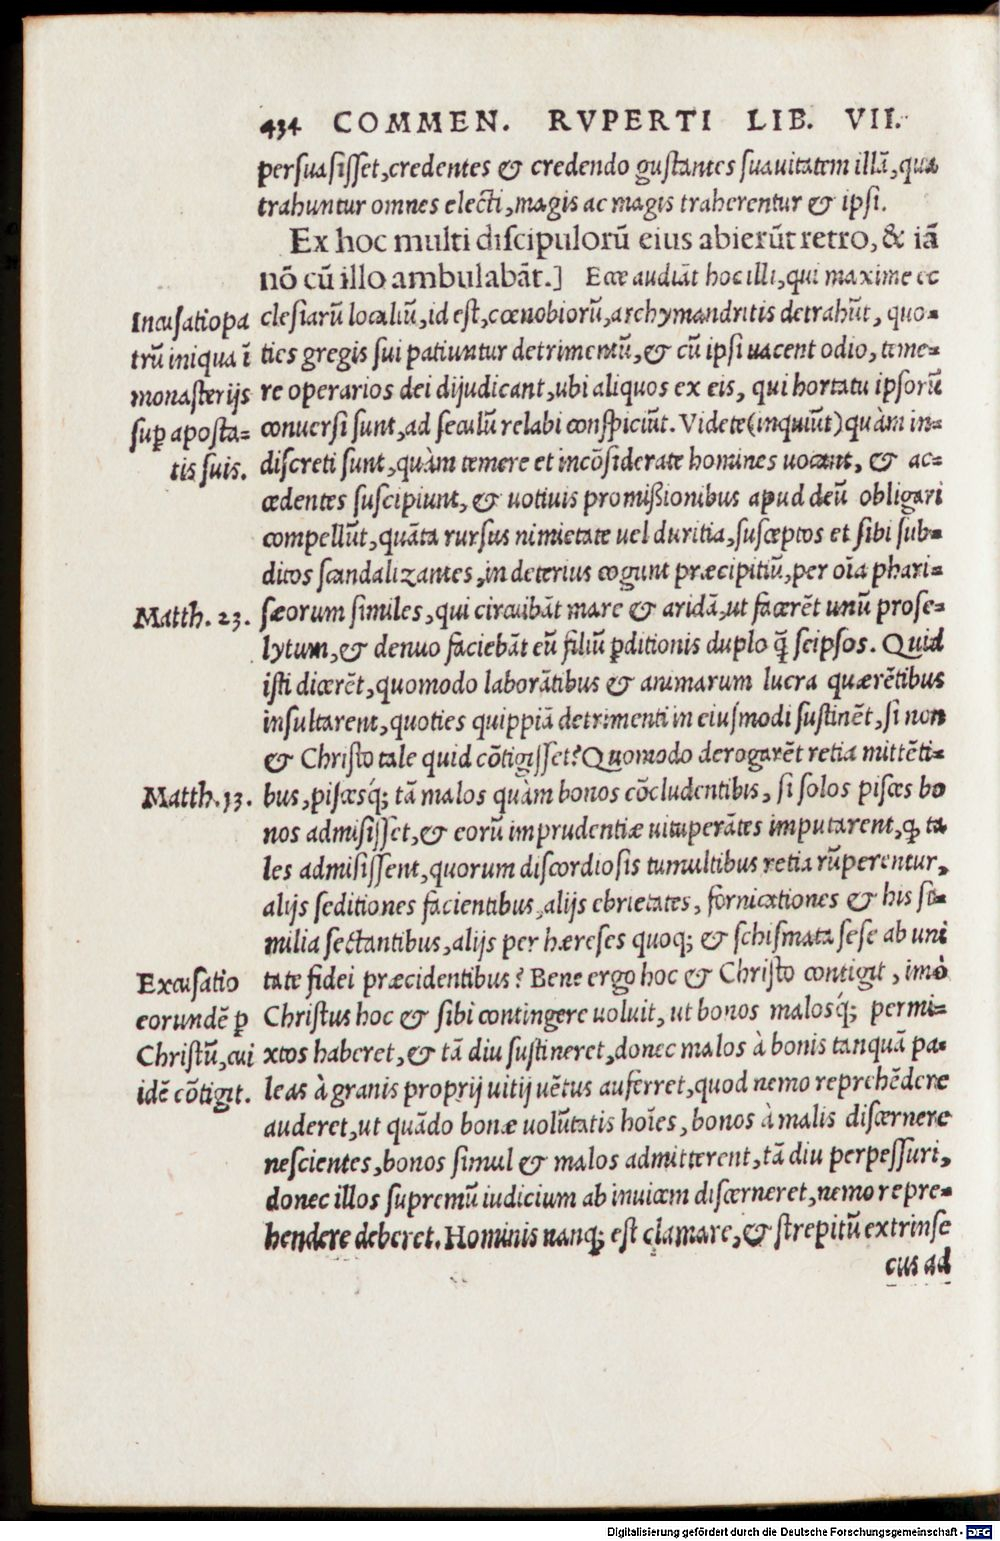 434 COMMEN. RVPERTI LIB. VII.
persuasisset, credentes & credendo gustantes suauitatem illã, qua
trahuntur omnes electi, magis ac magis traherentur & ipsi.
Ex hoc multi discipulorũ eius abierũt retro, & iã
nõ cũ illo ambulabãt.] Ecce audiãt hoc illi, qui maxime ec
Incusatio pa
trũ iniqua ĩ
monasterijs
suꝑ aposta=
tis suis.
clesiarũ localiũ, id est, cœnobiorũ, archymandritis detrahũt, quo=
ties gregis sui patiuntur detrimentũ, & cũ ipsi uacent odio, teme=
re operarios dei dijudicant, ubi aliquos ex eis, qui hortatu ipsorũ
conuersi sunt, ad seculũ relabi conspiciũt. Videte (inquiũt) quàm in=
discreti sunt, quàm temere et incõsiderate homines uocant, & ac=
cedentes suscipiunt, & uotiuis promißionibus apud deũ obligari
compellũt, quãta rursus nimietate uel duritia, susceptos et sibi sub=
ditos scandalizantes, in deterius cogunt præcipitiũ, per oĩa phari=
Matth. 23.
sæorum similes, qui circuibãt mare & aridã, ut facerẽt unũ prose=
lytum, & denuo faciebãt eũ filiũ ꝑditionis duplo q̃ seipsos. Quid
isti dicerẽt, quomodo laborãtibus & animarum lucra quærẽtibus
insultarent, quoties quippiã detrimenti in eiusmodi sustinẽt, si non
& Christo tale quid cõtigisset? Quomodo derogarẽt retia mittẽti=
Matth. 13.
bus, piscesq́; tã malos quàm bonos cõcludentibis, si solos pisces bo
nos admisisset, & eorũ imprudentiæ uituperãtes imputarent, ꝙ ta
les admisissent, quorum discordiosis tumultibus retia rũperentur,
alijs seditiones facientibus, alijs ebrietates, fornicationes & his si=
milia sectantibus, alijs per hæreses quoq; & schismata sese ab uni
Excusatio
eorundẽ ꝑ
Christũ, cui
idẽ cõtigit.
tate fidei præcidentibus? Bene ergo hoc & Christo contigit, imò
Christus hoc & sibi contingere uoluit, ut bonos malosq́; permi=
xtos haberet, & tã diu sustineret, donec malos à bonis tanquã pa=
leas à granis proprij uitij uẽtus auferret, quod nemo reprehẽdere
auderet, ut quãdo bonæ uolũtatis hoĩes, bonos à malis discernere
nescientes, bonos simul & malos admitterent, tã diu perpessuri,
donec illos supremũ iudicium ab inuicem discerneret, nemo repre=
hendere deberet. Hominis nanq; est clamare, & strepitũ extrinse
cus ad
Digitalisierung gefördert durch die Deutsche Forschungsgemeinschaft - DFG